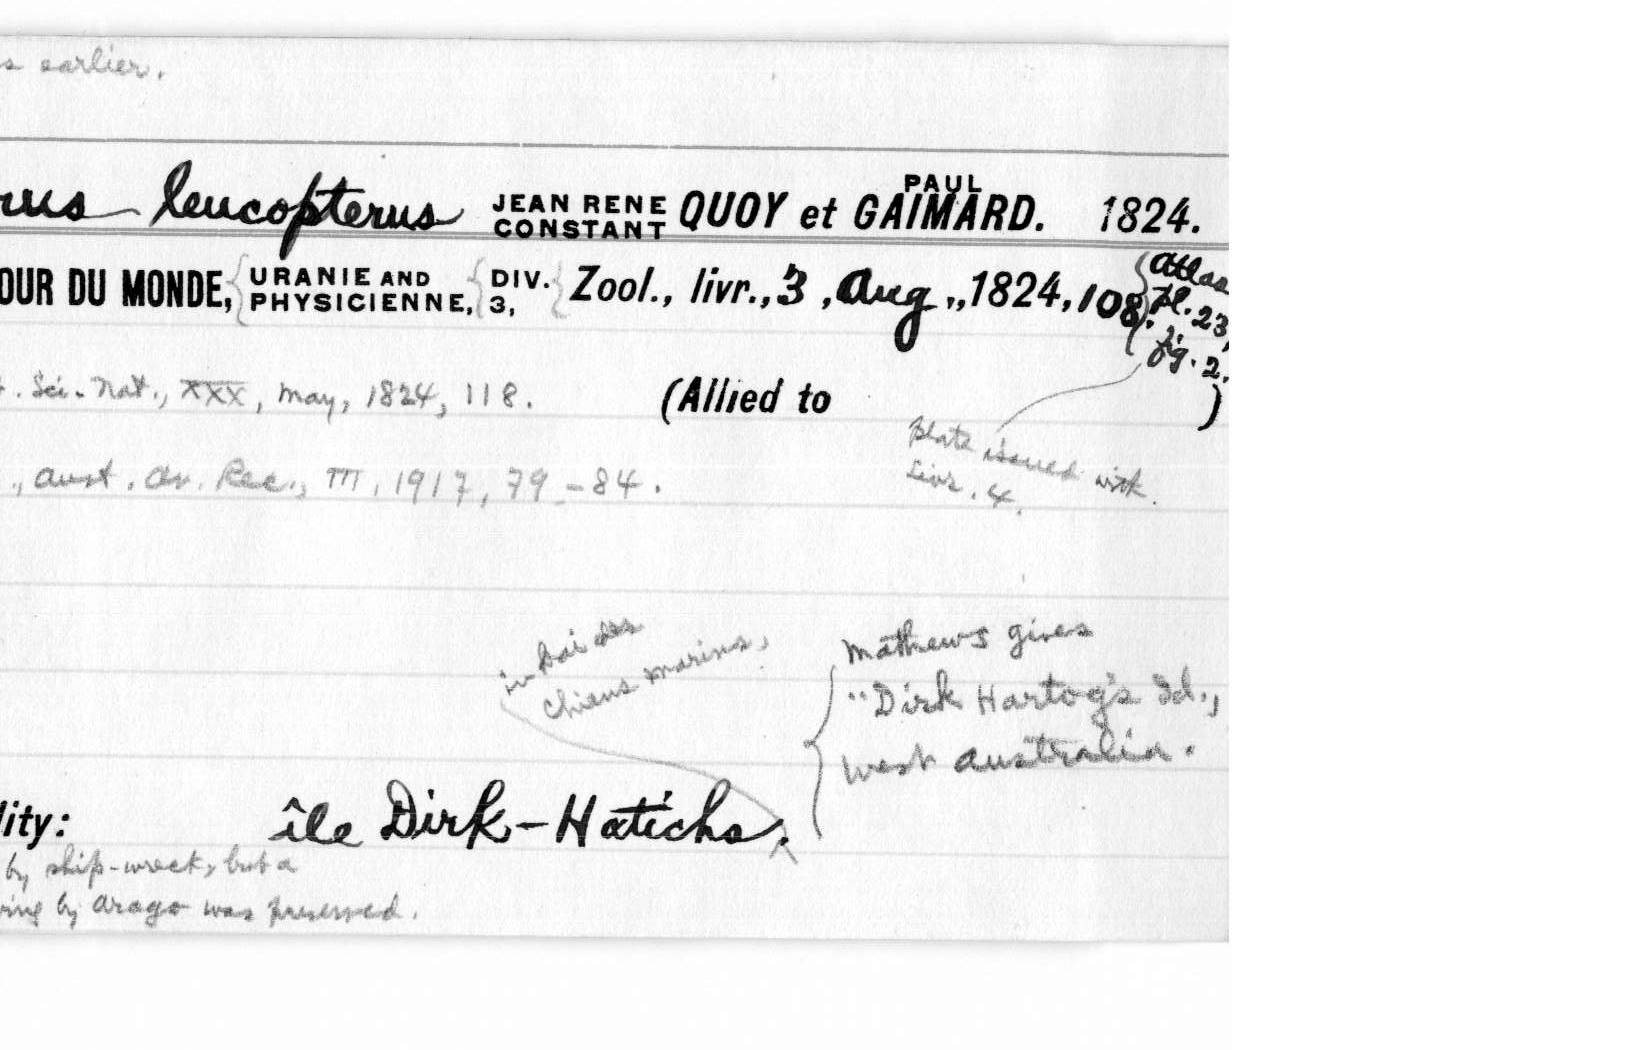 s earlier.
rus leucopterus JEAN RENE CONSTANT QUOY et PAUL GAIMARD. 1824.
OUR DU MONDE, { URANIE AND PHYSICIENNE, { DIV. 3, { Zool., livr., 3, Aug., 1824, 108. { Atlas Pl. 23, fig. 2.
. Sci. Nat., XXX, May, 1824, 118. (Allied to )
Plate issued with
Livr. 4.
., Aust. Av. Rec., III, 1917, 79-84.
in Bai des
Chiens marins,
Mathews gives
"Dirk Hartog's Id.,
West Australia.
lity: île Dirk-Hatichs.
by ship-wreck, but a
ing by Arago was preserved.